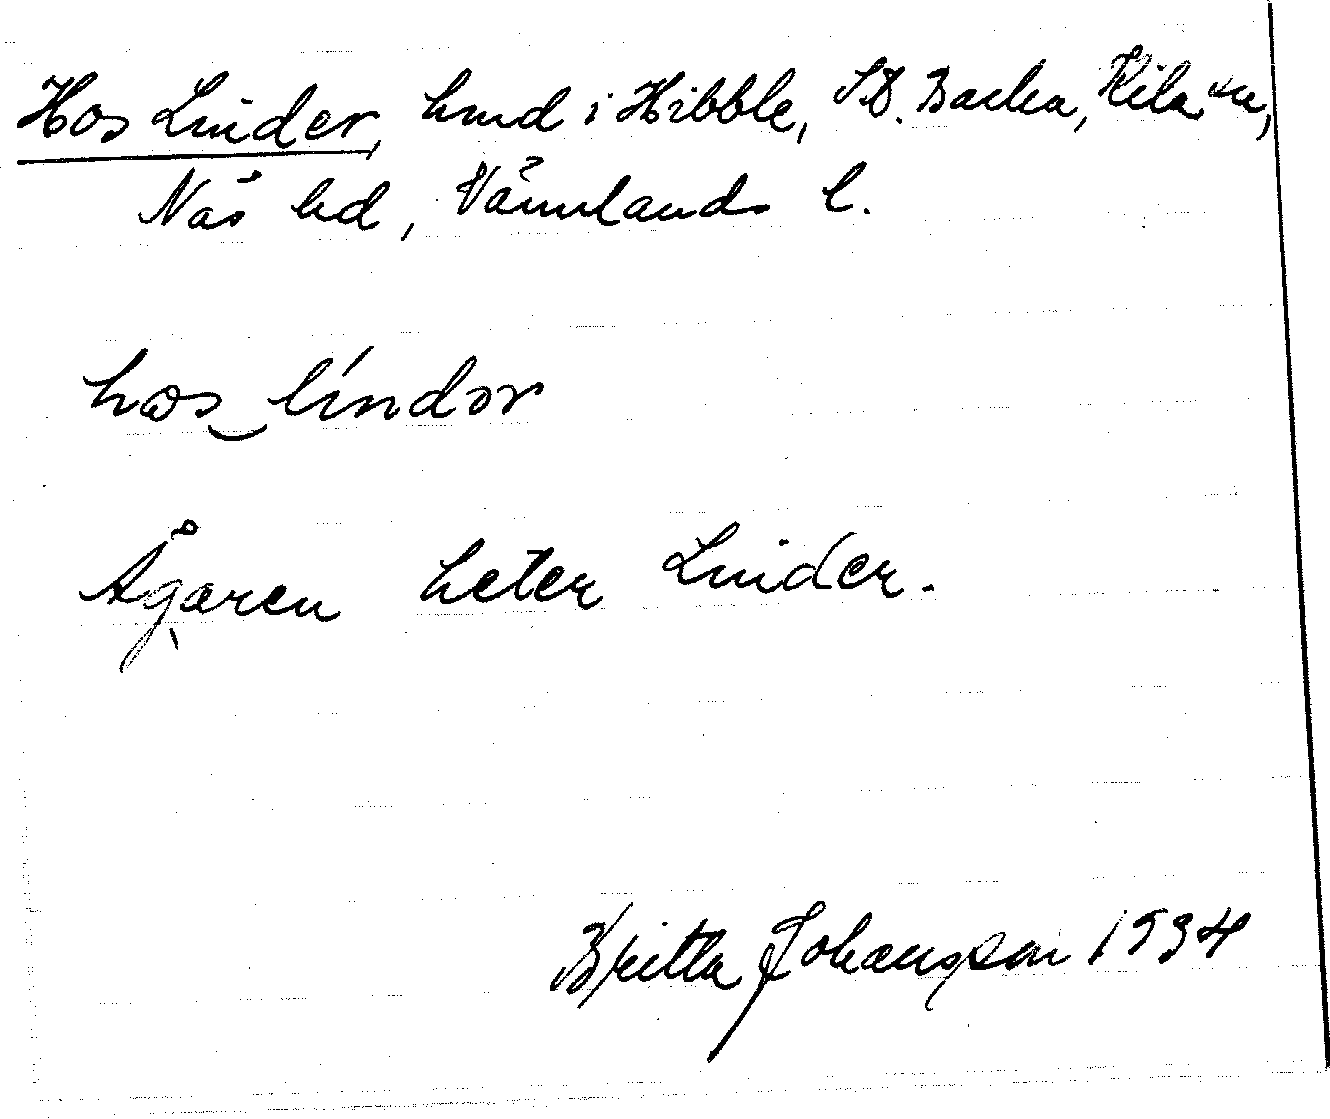 Hos Linder, hmd i Hibble, St. Backa, Kila sn,
Näs hd, Värmlands l.
hos lindər
Ägaren heter Linder.
Britta Johansson 1934